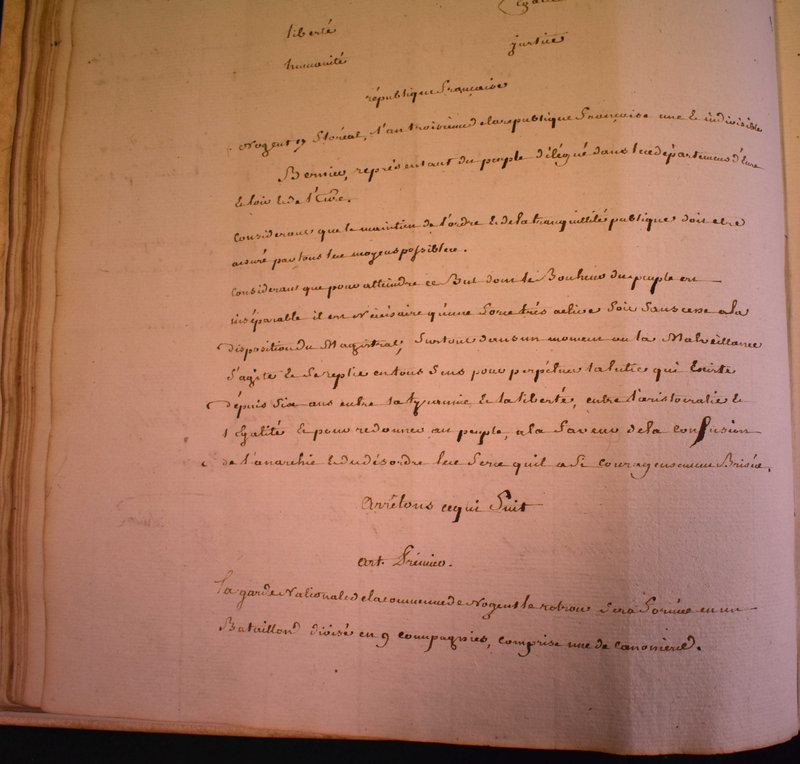 Egalité
liberté
justice
humanité
république française
Nogent 9 floréal, l'an troisieme de la republique française une & indivisible
Bernier, représentant du peuple délégué dans les départemens d'Eure
& loir & de l'Eure.
Considerant que le maintien de l'ordre & de la tranquillité publique doit etre
assuré par tous les moyens possibles.
Considerant que pour atteindre ce But dont le Bonheur du peuple est
inséparable il est Nécéssaire qu'une force trés active soit sans cesse a la
disposition du Magistrat, surtout dans un moment ou la Malveillance
s'agite & se replie en tous sens pour perpétuer la lutte qui Existe
dépuis six ans entre la tyrannie & la liberté, entre l'aristocratie &
l'Egalité & pour redonner au peuple, a la faveur de la confusion
de l'anarchie & du désordre les fers quil a si courageusement Brisés.
Arrêtons ce qui suit
art. Prémier.
la garde Nationale de la commune de Nogent le rotrou sera formée en un
Bataillon divisé en 9 compagnies, comprise une de canoniers.